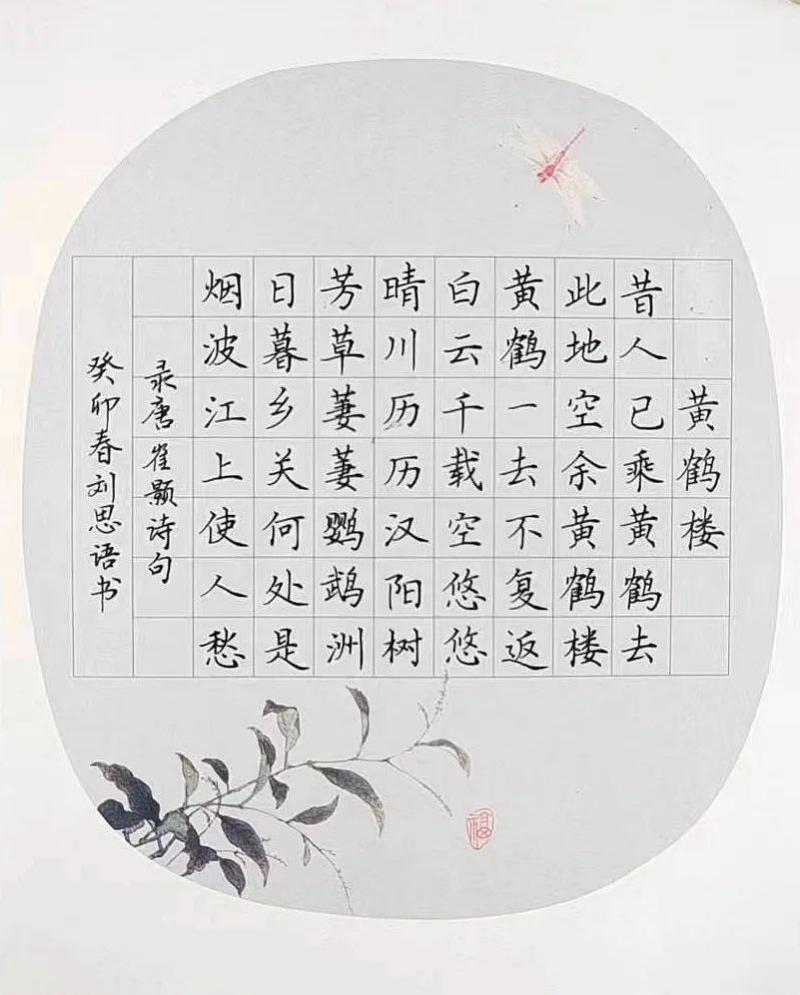 黄鹤楼
昔人已乘黄鹤去
此地空余黄鹤楼
黄鹤一去不复返
白云千载空悠悠
晴川历历汉阳树
芳草萋萋鹦鹉洲
日暮乡关何处是
烟波江上使人愁
录唐崔颢诗句
癸卯春刘思语书
福